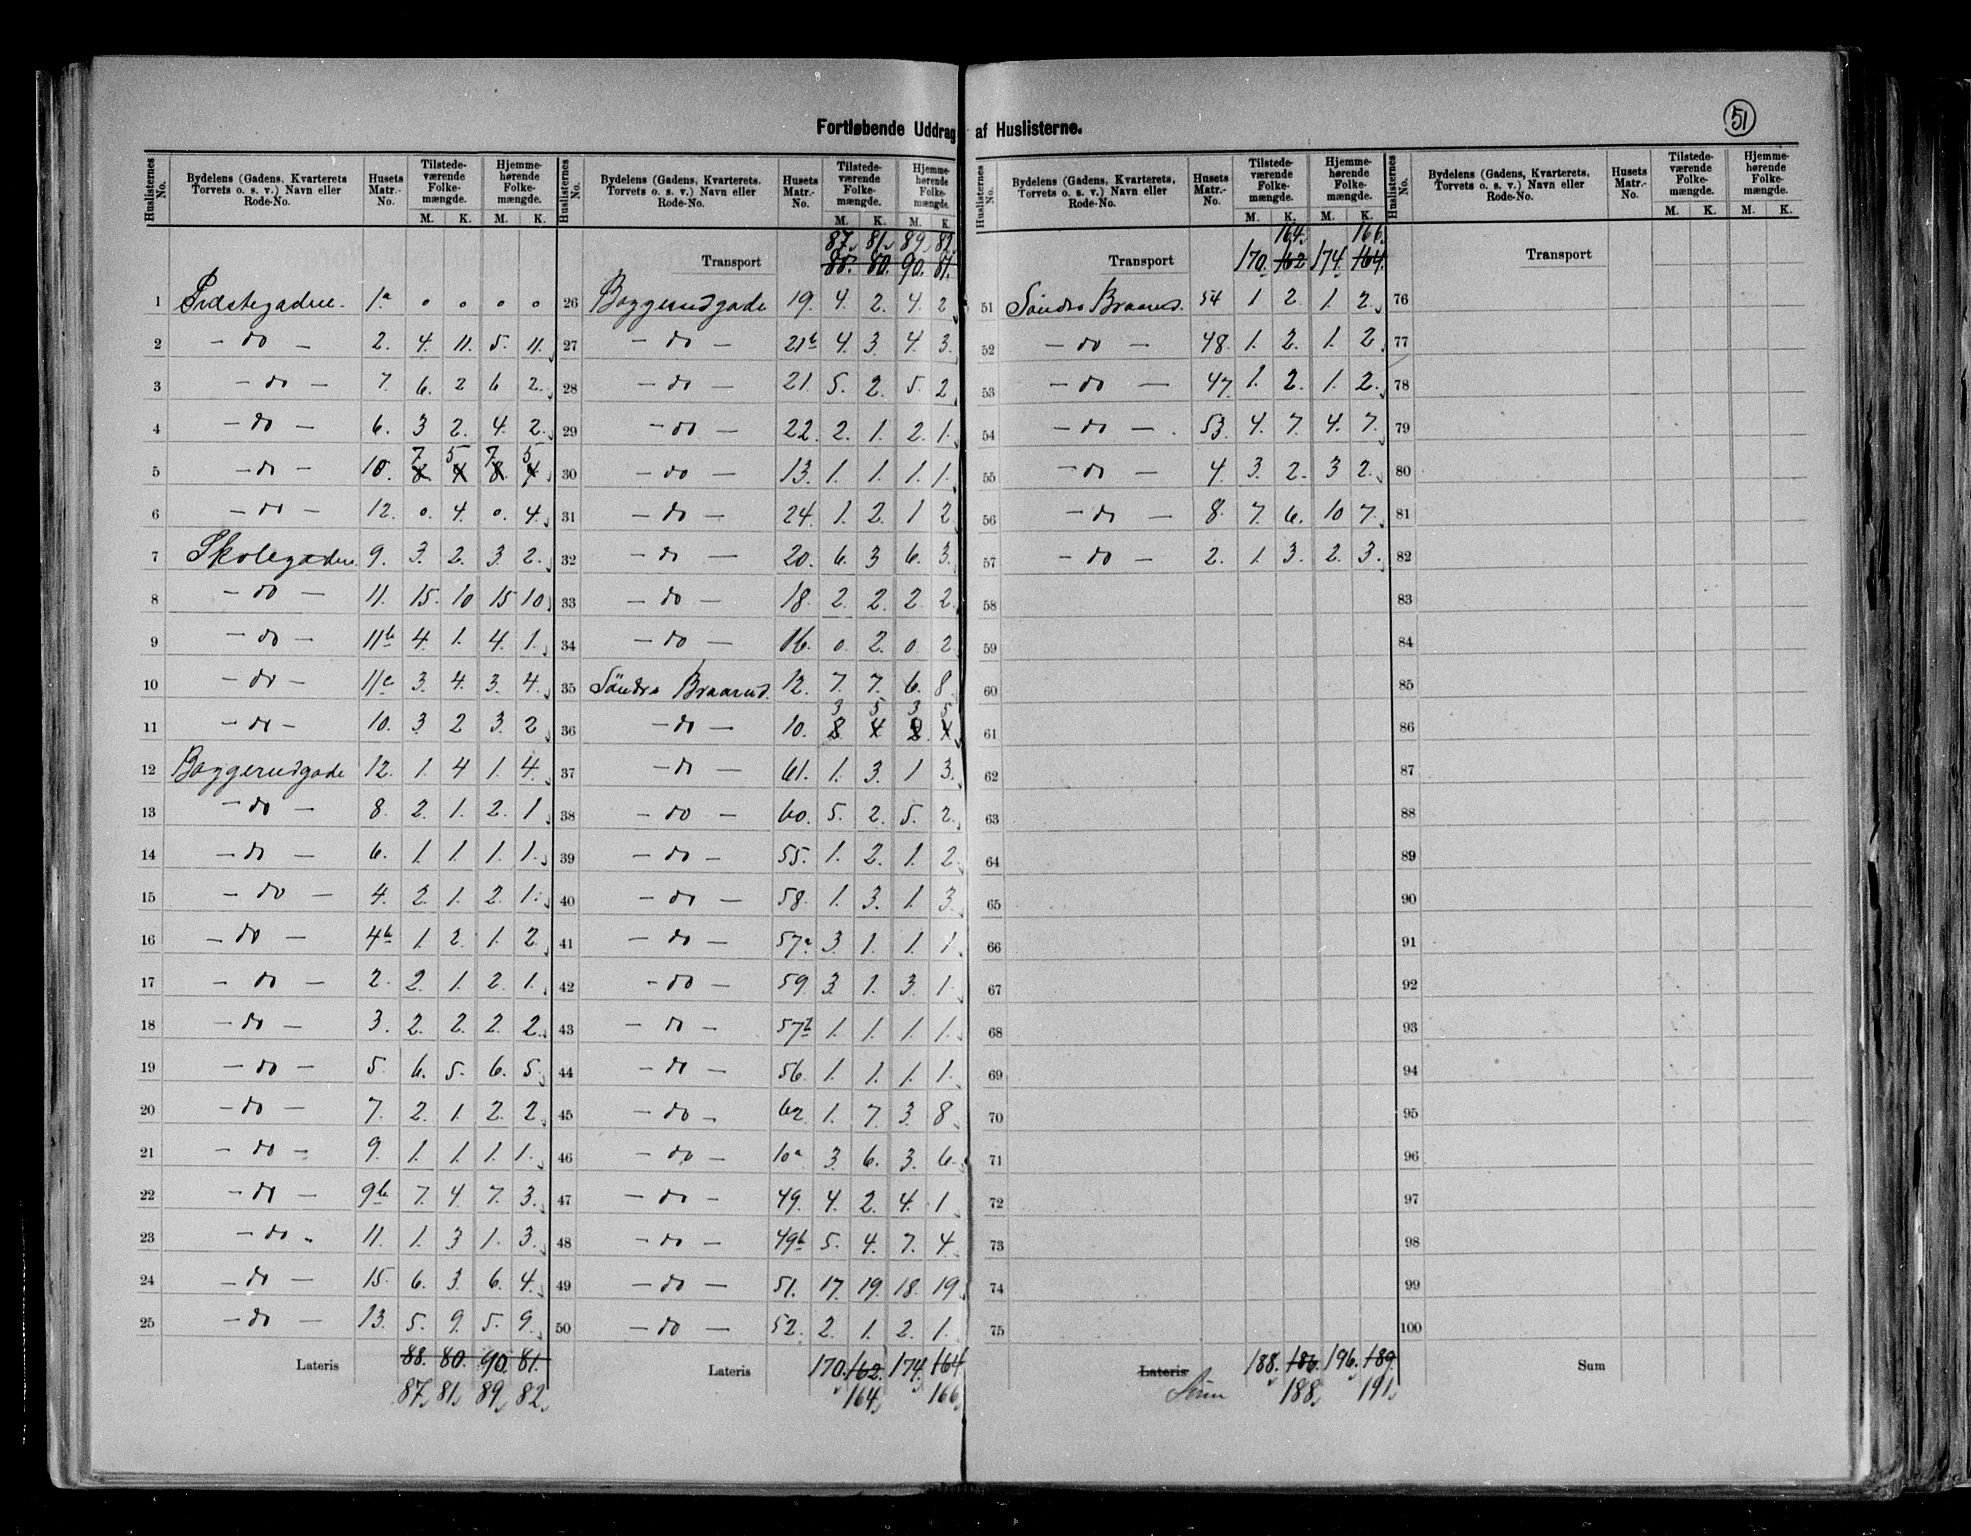 Fortløbende Uddrag af Huslisterne.
51
Huslisternes No. | Bydelens (Gadens, Kvarterets, Torvets o. s. v.) Navn eller Rode-No. | Husets Matr.-No. | Tilstedeværende Folkemængde. M. K. | Hjemmehørende Folkemængde. M. K.
1 Præstegaden. 1a 0 0 0 0
2 — do — 2. 4. 11. 5. 11.
3 — do — 7. 6. 2 6 2.
4 — do — 6. 3 2. 4. 2.
5 — do — 10. 7. 5 7. 5.
6 — do — 12. 0. 4. 0. 4.
7 Skolegaden 9. 3. 2. 3. 2.
8 — do — 11. 15. 10 15 10
9 — do — 11b 4. 1. 4. 1.
10 — do — 11c 3. 4. 3. 4.
11 — do — 10. 3 2 3. 2
12 Baggerudgade 12. 1. 4 1. 4.
13 — do — 8. 2. 1. 2. 1
14 — do — 6. 1. 1. 1. 1.
15 — do — 4. 2. 1. 2. 1.
16 — do — 4b 1. 2. 1. 2.
17 — do — 2. 2. 1. 2. 1.
18 — do — 3. 2. 2. 2. 2.
19 — do — 5. 6. 5. 6. 5
20 — do — 7. 2. 1. 2. 2
21 — do — 9. 1. 1. 1. 1.
22 — do — 9b 7. 4 7. 3.
23 — do — 11. 1. 3 1. 3.
24 — do — 15. 6. 3. 6. 4.
25 — do — 13. 5. 9. 5. 9.
Lateris 88. 80. 90. 81.
87 81 89 82
Huslisternes No. | Bydelens (Gadens, Kvarterets, Torvets o. s. v.) Navn eller Rode-No. | Husets Matr.-No. | Tilstedeværende Folkemængde. M. K. | Hjemmehørende Folkemængde. M. K.
87 81 89 82
Transport 88. 80. 90. 81.
26 Baggerudgade 19. 4. 2. 4. 2
27 — do — 21b 4. 3. 4. 3.
28 — do — 21. 5. 2. 5. 2
29 — do — 22. 2. 1. 2. 1.
30 — do — 13. 1. 1. 1. 1.
31 — do — 24. 1. 2. 1 2
32 — do — 20. 6. 3 6. 3.
33 — do — 18. 2. 2. 2 2.
34 — do — 16. 0. 2. 0. 2
35 Søndre Braarud. 12. 7. 7. 6. 8
36 — do — 10. 3 5 3 5
37 — do — 61. 1. 3. 1 3.
38 — do — 60. 5. 2. 5. 2.
39 — do — 55. 1. 2. 1. 2.
40 — do — 58. 1. 3. 1. 3.
41 — do — 57a 3. 1. 1. 1.
42 — do — 59. 3. 1. 3. 1.
43 — do — 57b 1. 1. 1. 1.
44 — do — 56 1. 1. 1. 1.
45 — do — 62 1. 7. 3. 8
46 — do — 10a 3. 6. 3. 6.
47 — do — 49. 4. 2. 4. 1
48 — do — 49b 5. 4. 7. 4
49 — do — 51. 17. 19. 18. 19.
50 — do — 52. 2. 1. 2. 1.
Lateris 170. 162. 174. 164
164 166
Huslisternes No. | Bydelens (Gadens, Kvarterets, Torvets o. s. v.) Navn eller Rode-No. | Husets Matr.-No. | Tilstedeværende Folkemængde. M. K. | Hjemmehørende Folkemængde. M. K.
164. 166.
Transport 170. 162 174. 164.
51 Søndre Braarud. 54 1 2. 1. 2.
52 — do — 48. 1. 2. 1. 2
53 — do — 47. 1. 2. 1 2.
54 — do — 53. 4. 7. 4. 7.
55 — do — 4. 3. 2. 3 2.
56 — do — 8. 7. 6. 10 7.
57 — do — 2. 1. 3. 2. 3.
58
59
60
61
62
63
64
65
66
67
68
69
70
71
72
73
74
75
Lateris 188. 186. 196. 189
Sum 188 191
Huslisternes No. | Bydelens (Gadens, Kvarterets, Torvets o. s. v.) Navn eller Rode-No. | Husets Matr.-No. | Tilstedeværende Folkemængde. M. K. | Hjemmehørende Folkemængde. M. K.
Transport
76
77
78
79
80
81
82
83
84
85
86
87
88
89
90
91
92
93
94
95
96
97
98
99
100
Sum